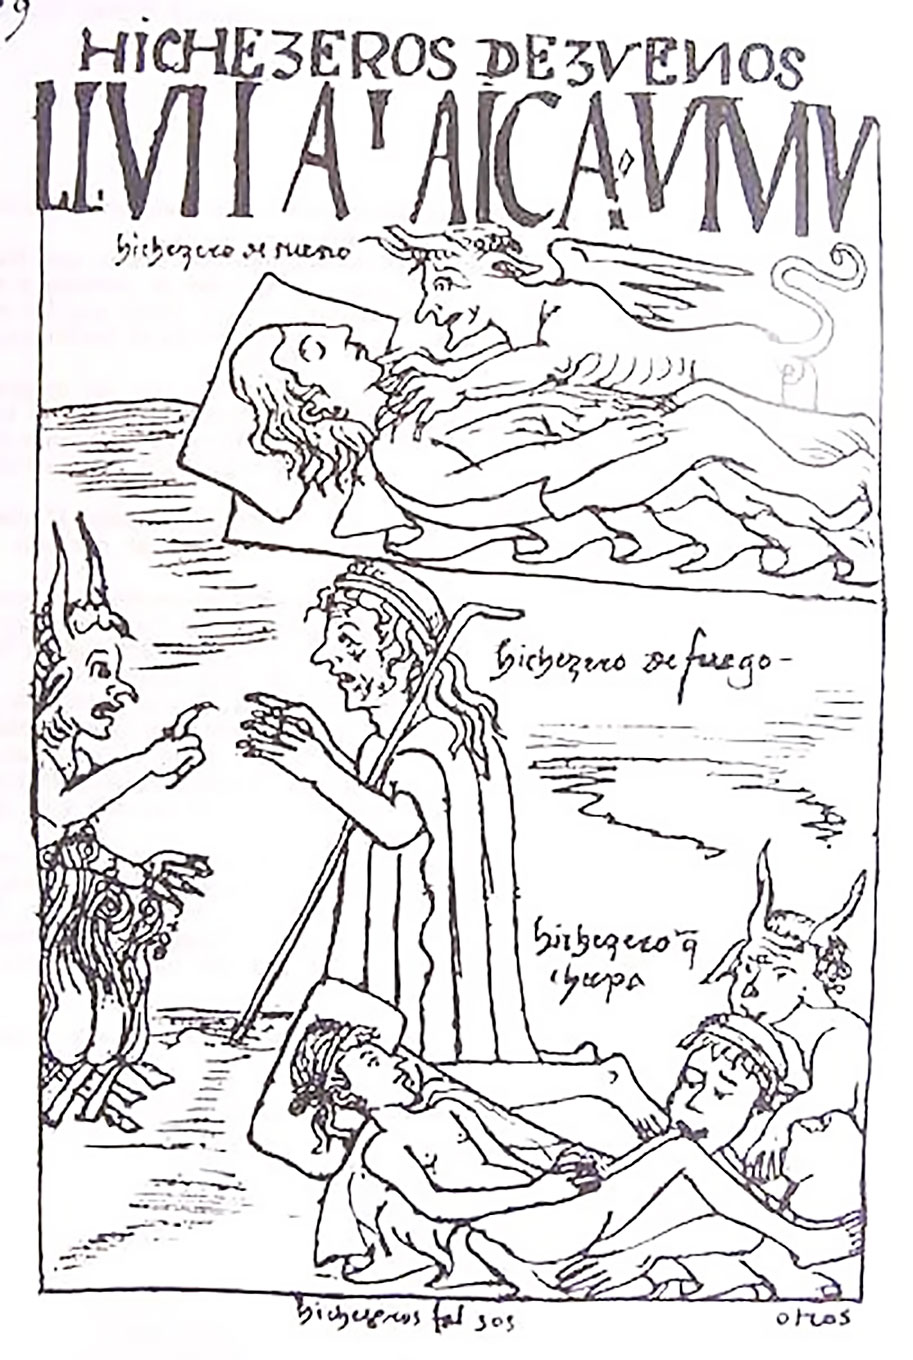 HICHEZEROS DE ZVENOS
LLVLLA' LAICA·VMV
hichezero de sueno
hichezero de fuego -
hichezero q̃
chupa
hichezeros falsos
otros